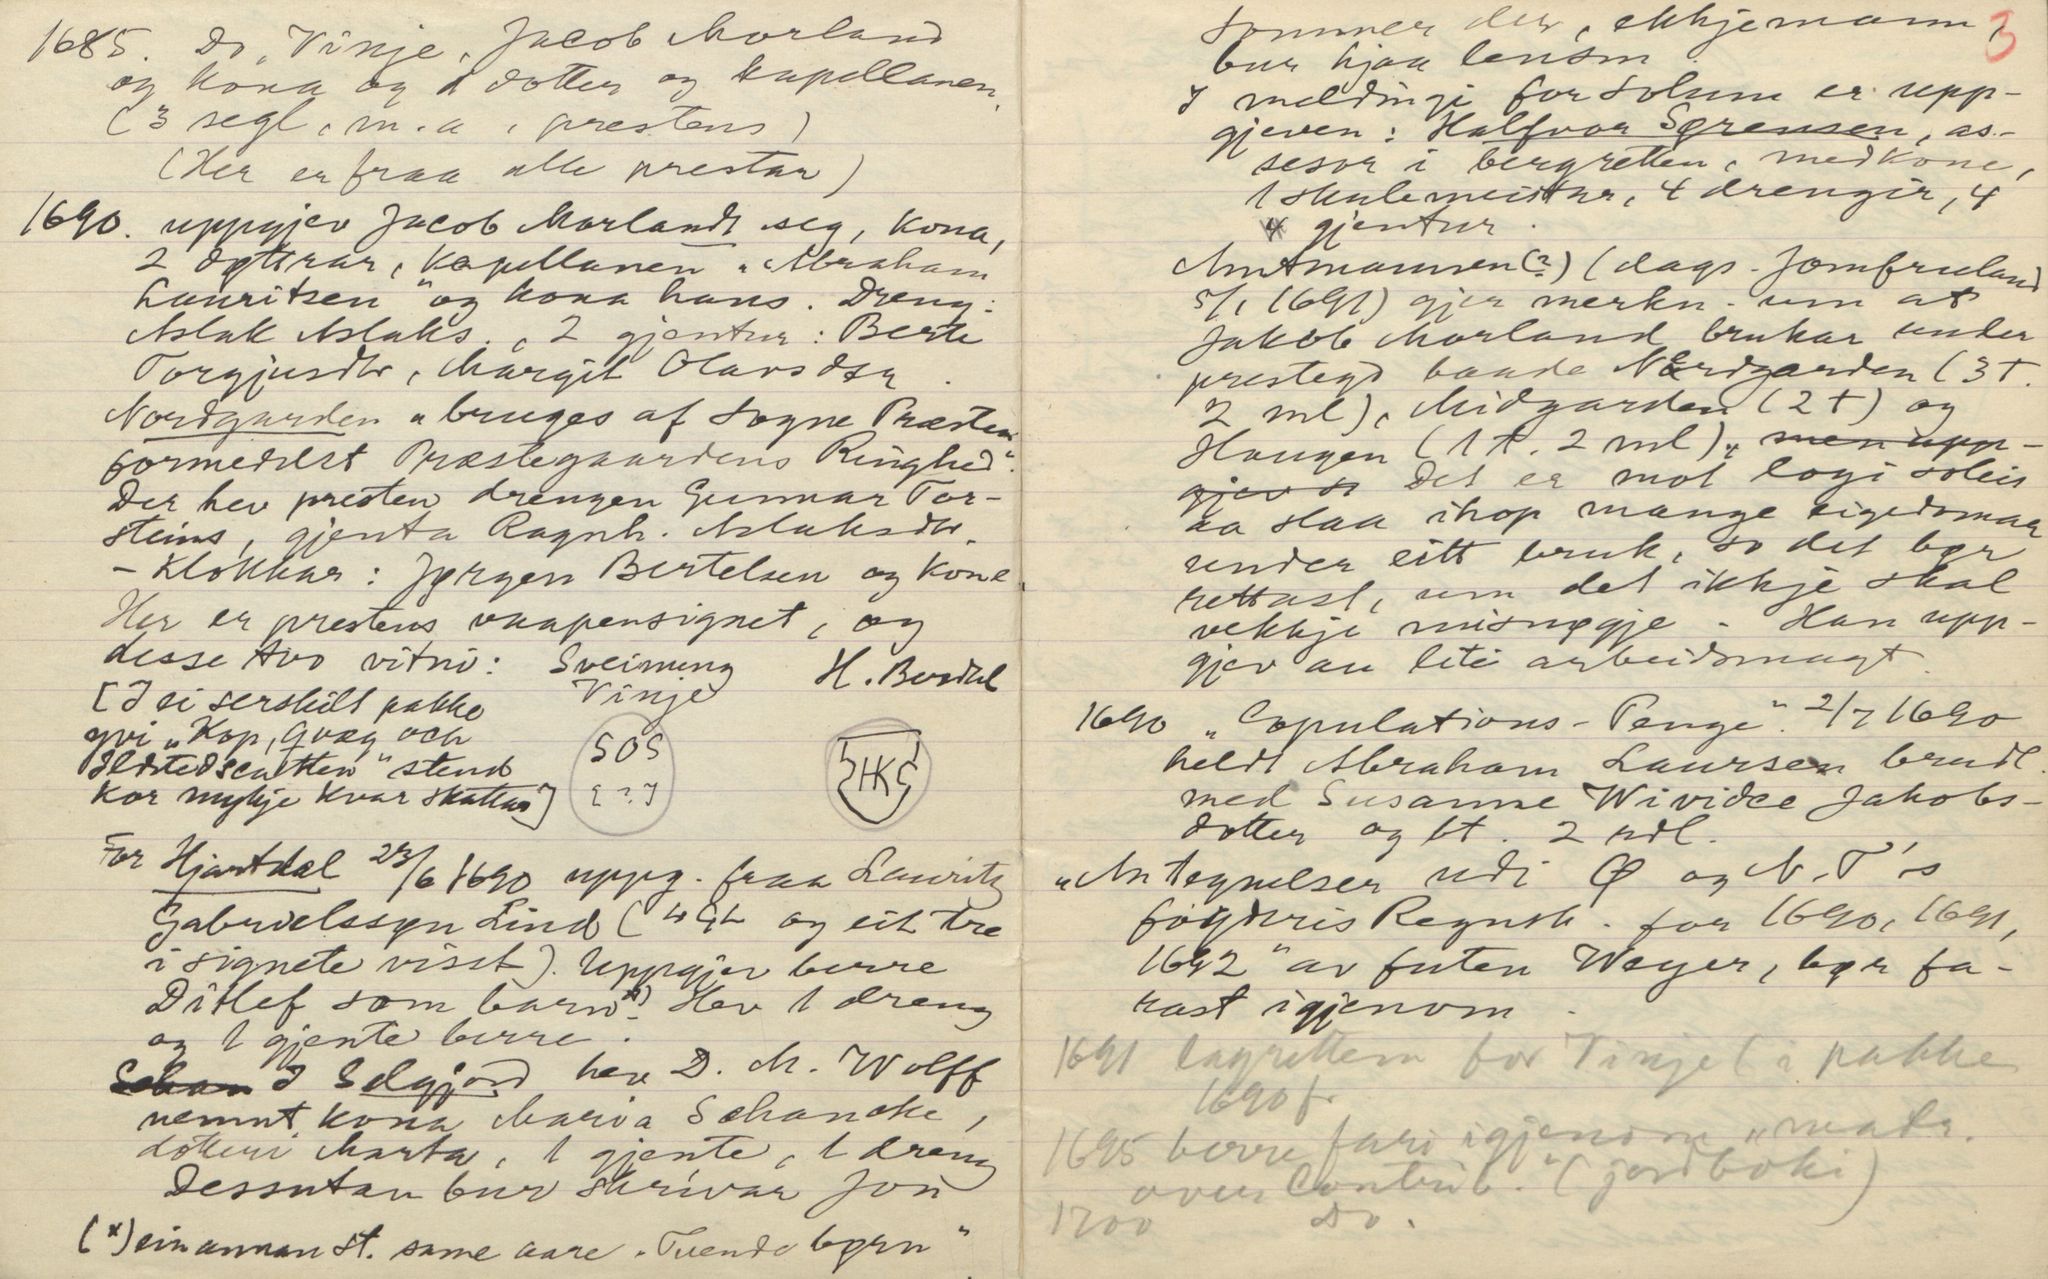 1685. Do, Vinje, Jacob Morland
og kona og 1 dotter og kapellanen.
(3 segl, m. a, prestens)
(Her er fraa alle prestar)
1690. uppgjev Jacob Morlandt seg, kona,
2 døttrar, kapellanen "Abraham
Lauritsen" og kona hans. Dreng:
Aslak Aslaks., 2 gjentur: Berte
Torgjusdtr, Margit Olavsdtr.
Nordgarden "bruges af Sogne Præsten
formedelst Præstegaardens Ringhed".
Der hev presten drengen Gunnar Tor-
steins, gjenta Ragnh. Aslaksdtr.
- Klokkar: Jørgen Bertelsen og kone.
Her er prestens vaapensignet, og
desse tvo vitni: Sveinung H. Berdal
Vinje
[I ei serskilt pakke
yvi "Kop, Qvæg och
Ildstedscatten" stend
kor mykje kvar skattar]
SOS
[?]
HK
For Hjartdal 23/6 1690 uppg. fraa Lauritz
Gabrielssyn Lind ( LGL og eit tre
i signete visst). Uppgjev berre
Ditlef som barn*). Hev 1 dreng
og 1 gjente berre.
I Selgjord hev D. M. Wolff
nemnt kona Maria Schancke,
dotteri Marta, 1 gjente, 1 dreng
Dessutan bur skrivar Jon
(*) ein annan st. same aare "Tvende børn"
3
Sommer der, ekkjemann,
bur hjaa lensm.
I meldingi for Solum er upp-
gjeven: Halfvor Sørensen, as-
sesor i bergretten, med kone,
1 skulemeister, 4 drengir, 4
4 gjentur.
Amtmannen(?) (dags. Jomfruland
5/1 1691) gjer merkn. um at
Jakob Morland brukar under
prestegd baade Nordgarden (3 t.
2 ml), Midgarden (2 t) og
Haugen (1 t. 2 ml), men upp-
gjev so Det er mot logi soleis
aa slaa ihop mange eigedomar
under eitt bruk, so det bør
rettast, um det ikkje skal
vekkje misnøgje. Han upp-
gjev au lite arbeidsmagt.
1690 "Copulations-Penge". 2/7 1690
heldt Abraham Laursen brudl.
med Susanne Wividee Jakobs-
dotter og bt. 2 rdl.
"Antegnelser udi Ø og N. T's
fogderis Regnsk. for 1690, 1691,
1692" av futen Weyer, bør fa-
rast igjenom.
1691 lagrettem for Vinje (i pakke
1690 fr.
1695 berre fari igjenom "matr.
over Contrib." (jordboki)
1700 Do.